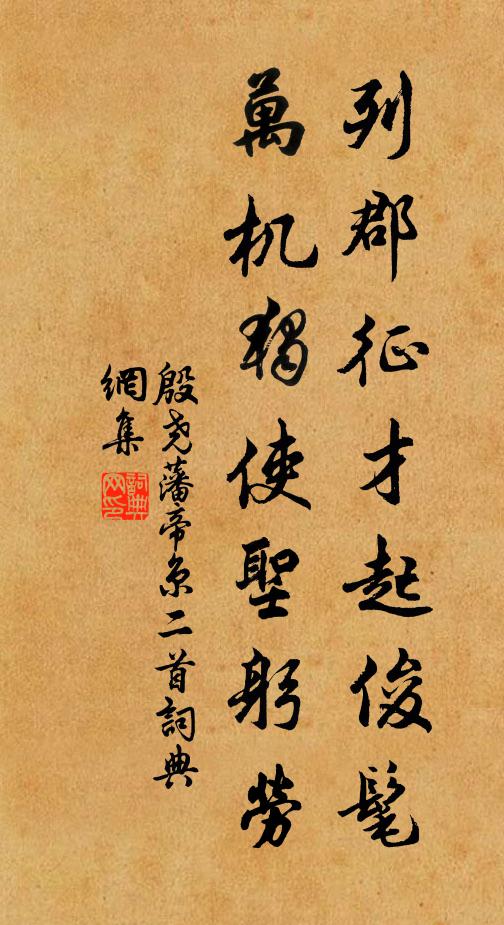 列郡征才起俊髦
萬机獨使聖躬勞
殷尧藩帝京二首詞典
網集
詞典
网印